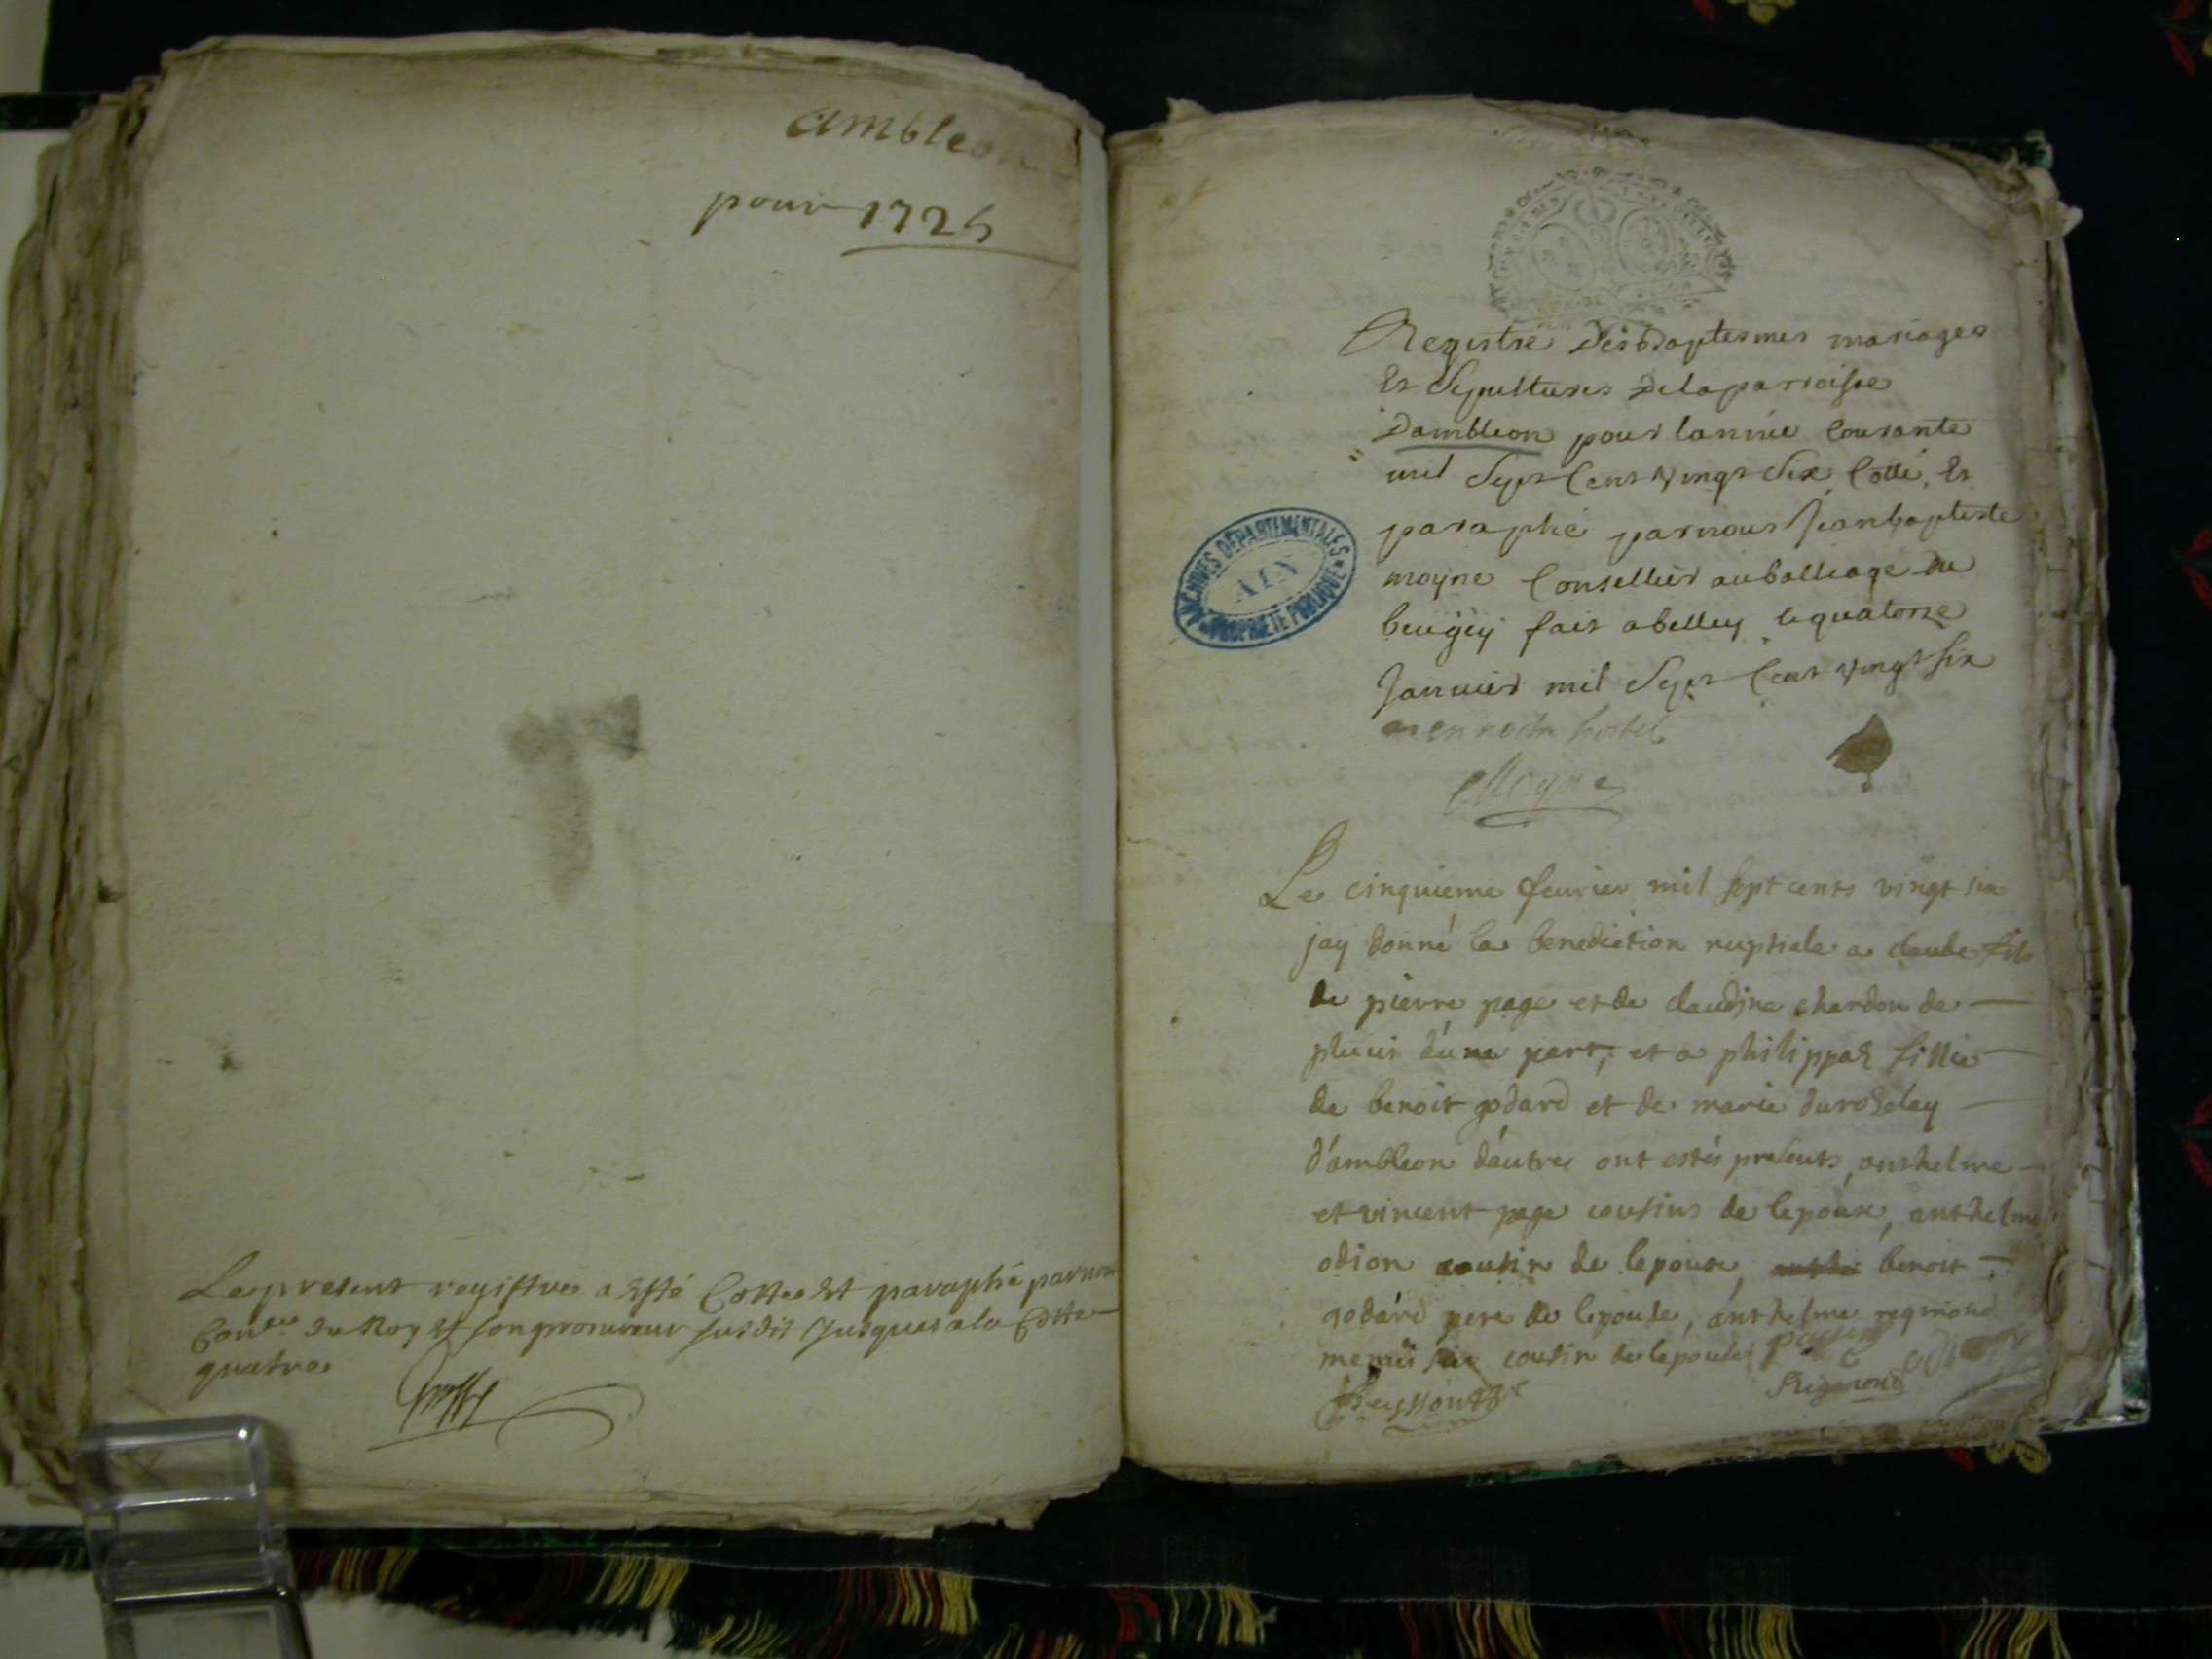 ambleon
pour 1725
Le present registre a esté Cotté et paraphé par nous
Con.er du Roy et son procureur susdit Jusques a la Cotte
quatre
Registre des Baptesmes mariages
Et Sepultures de la parroisse
Dambleon pour lannée Courante
mil Sept Cent vingt Six Cotté, Et
paraphé par nous Jean baptiste
moyne Conseiller au balliage du
beugey fait a belley le quatorze
Janvier mil Sept Cent vingt six
en nostre hostel
Moyne
ARCHIVES DEPARTEMENTALES
AIN
PROPRIETE PUBLIQUE
Le cinquieme fevrier mil sept cents vingt six
jay donné la benediction nuptiale a claude fils
de pierre page et de claudine chardon de
d'une part, et a philippaz fillie
de benoit godard et de marie
d'ambleon d'autre ont estés presents, anthelme
et vincent page cousins de lepoux, anthelme
odion cousin de lepoux, benoit
godard pere de lepouse, anthelme reymond
cousin de lepouse